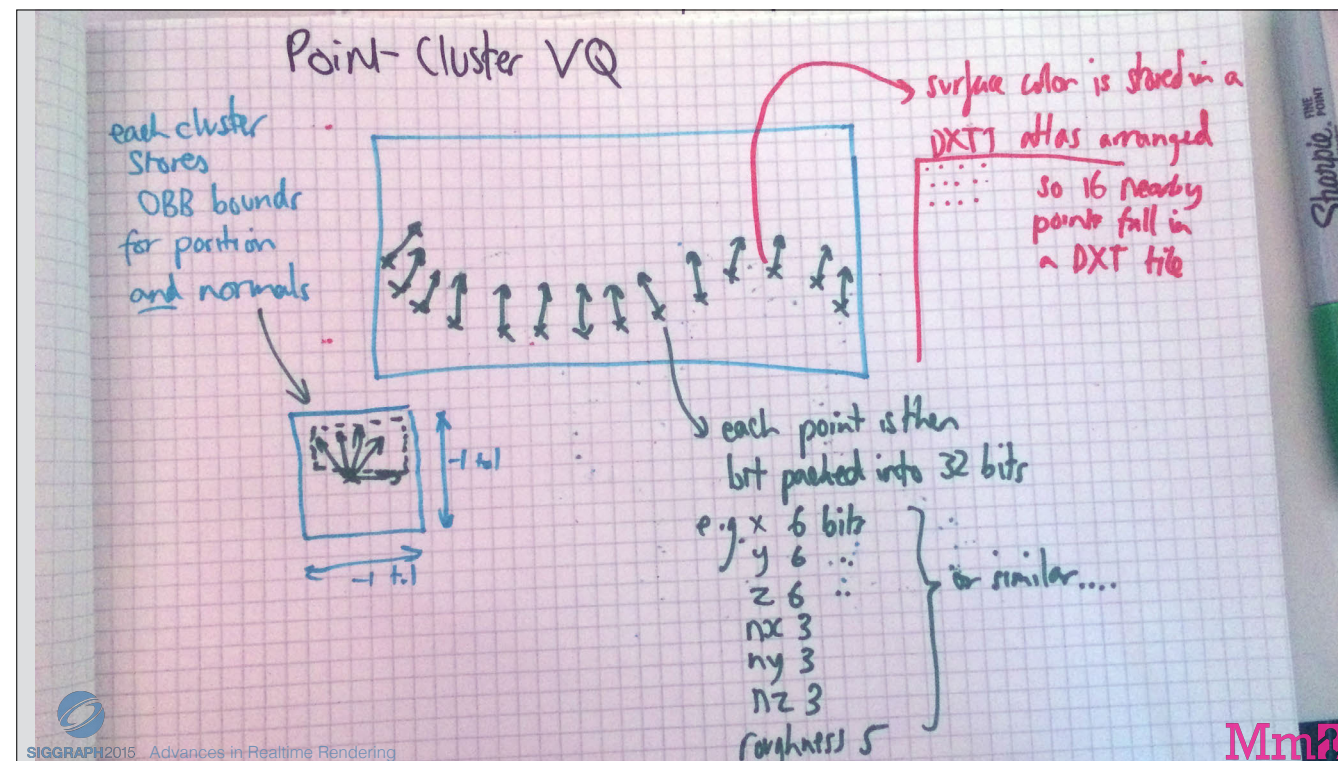 Point-Cluster VQ
each cluster
stores
OBB bounds
for position
and normals
-1 to 1
-1 to 1
surface color is stored in a
DXT1 atlas arranged
so 16 nearby
points fall in
a DXT tile
each point is then
bit packed into 32 bits
e.g. x 6 bits
y 6 ...
z 6 ..
nx 3
ny 3
nz 3
roughness 5
or similar....
Sharpie.
FINE
POINT
SIGGRAPH2015 Advances in Realtime Rendering
Mm